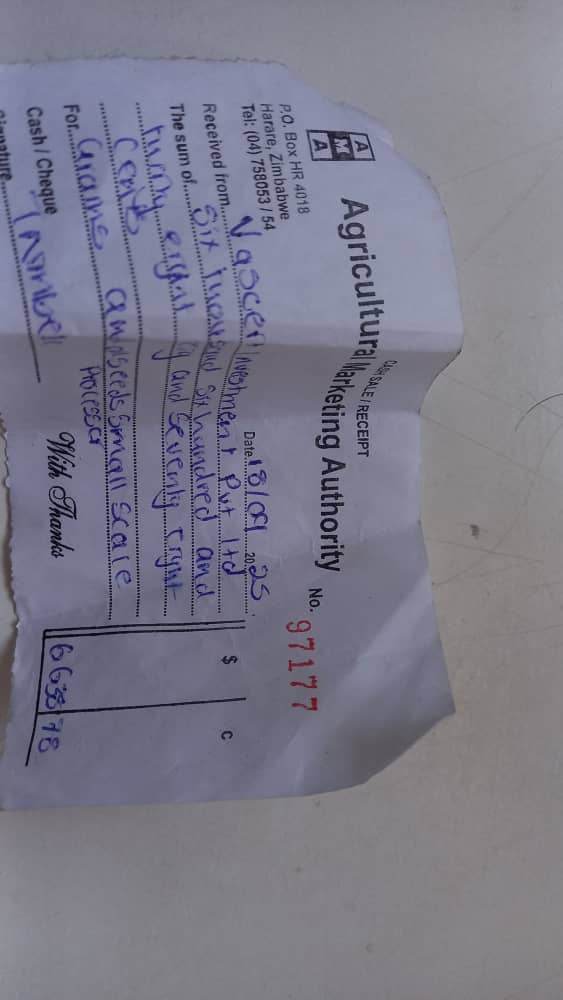 CASH SALE / RECEIPT
AMA
Agricultural Marketing Authority
No. 97177
P.O. Box HR 4018
Harare, Zimbabwe
Tel: (04) 758053 / 54
Date 18/09 2025
Received from Vascen Investment Pvt Ltd
The sum of Six thousand six hundred and
eight and seventy eight
Cents
For Grains and seeds small scale
Processor
Cash / Cheque
With Thanks
Signature
$ C
78